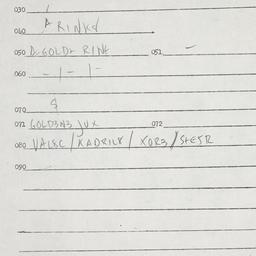 030 /
040 A RINKY
050 D-GOLD+ RINK 051 —
060 - 1 - 1 -
070 9
071 GOLD3N3 JUX 072
080 VALSC / KADRILY / XOR3 / STEJR
090